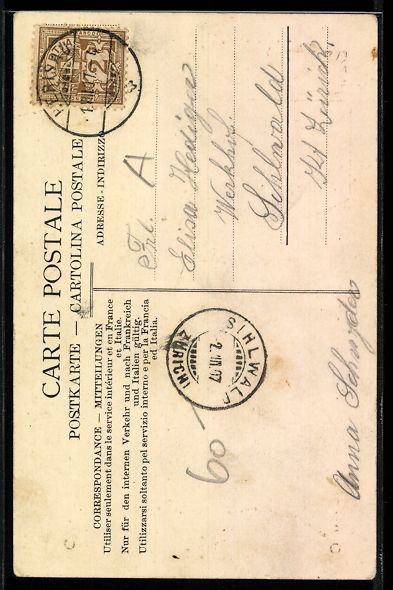 CARTE POSTALE
POSTKARTE — CARTOLINA POSTALE
ADRESSE - INDIRIZZO
CORRESPONDANCE — MITTEILUNGEN
Utiliser seulement dans le service intérieur et en France
et Italie.
Nur für den internen Verkehr und nach Frankreich
und Italien gültig.
Utilizzarsi soltanto pel servizio interno e per la Francia
ed Italia.
2
Frl. A
Elisa Hediger
Werkhof
Sihlwald
Kt Zürich.
SIHLWALD
2. VII. 07
(ZÜRICH)
60
Anna Schneider